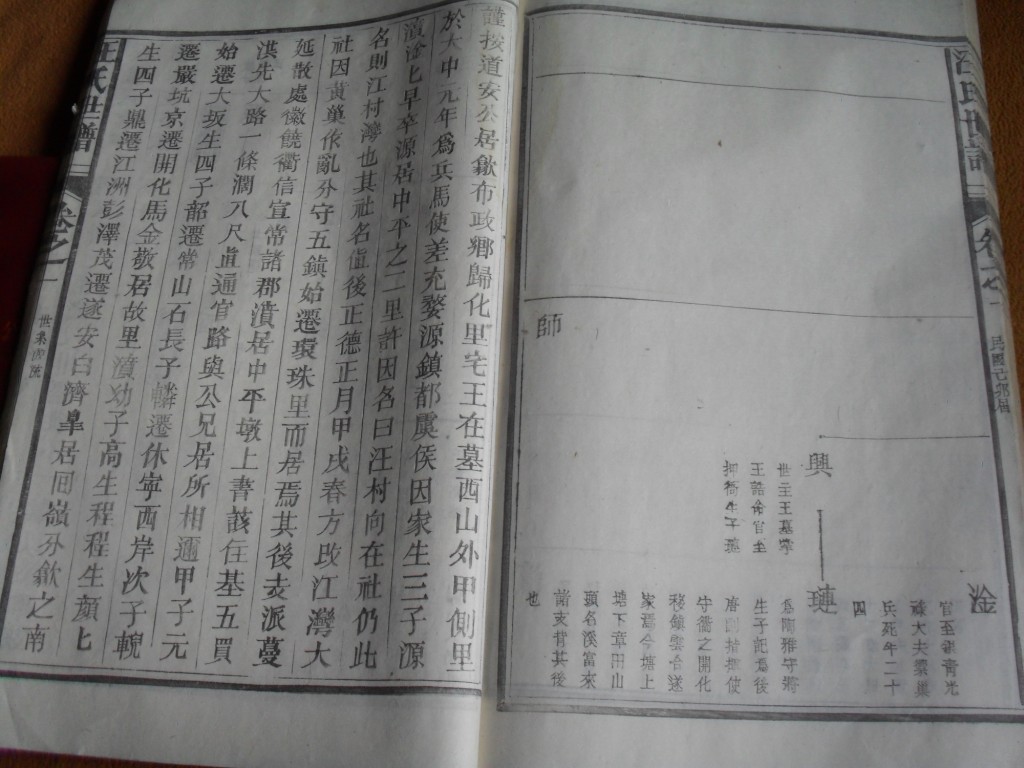 汪氏世譜
師
淦
官至銀青光
祿大夫禦巢
兵死年二十
四
興
世王王墓掌
王誥命官至
押衙生子璉
璉
生子記篤後
守衢之開化
移鎮雲台遂
家焉今墩上
塘下章田山
頭名溪富來
諸支皆其後
也
謹按道安公居歙布政鄉歸化里宅王在墓西山外甲側里
於大中元年為兵馬使差充婺源鎮都虞侯因家生三子源
濆淦匕早卒源居中平之二里許因名曰汪村向在社仍此
名則江村灣也其社名值後正德正月甲戌春方改江灣大
社因黃巢作亂分守五鎮始遷環珠里而居焉其後支派蔓
延散處徽饒衢信宣常諸郡濆居中平墩上書該住基五買
洪先大路一條濶八尺直通官路與公兄居所相邇甲子元
始遷大坂生四子韶遷常山石長子轔遷休寧西岸次子輗
遷嚴坑京遷開化馬金敬居故里濆幼子高生程程生顏匕
生四子鼎遷江洲彭澤茂遷遂安白濟臯居回嶺分歙之南
汪氏世譜
卷之一
世系源流